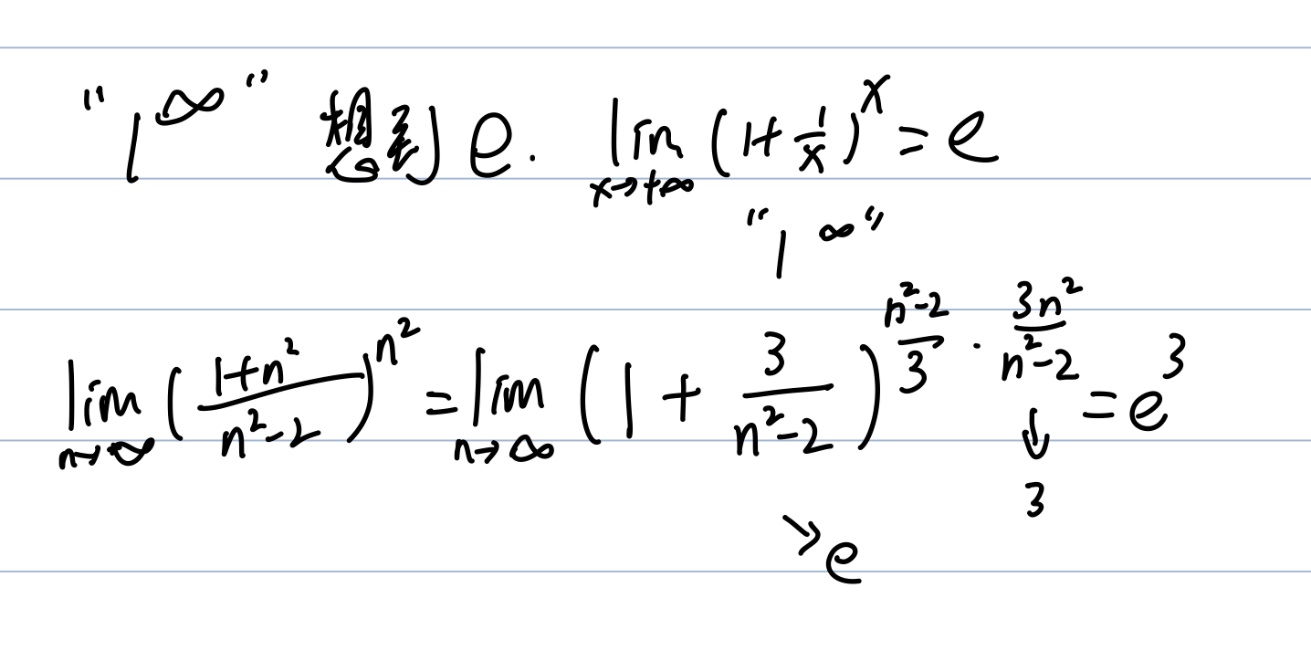 "1^∞" 想到 e. lim_{x→+∞} (1+1/x)^x = e
"1^∞"
lim_{n→∞} ((1+n²)/(n²-2))^{n²} = lim_{n→∞} (1 + 3/(n²-2))^{(n²-2)/3 · 3n²/(n²-2)} = e³
↓
3
→e